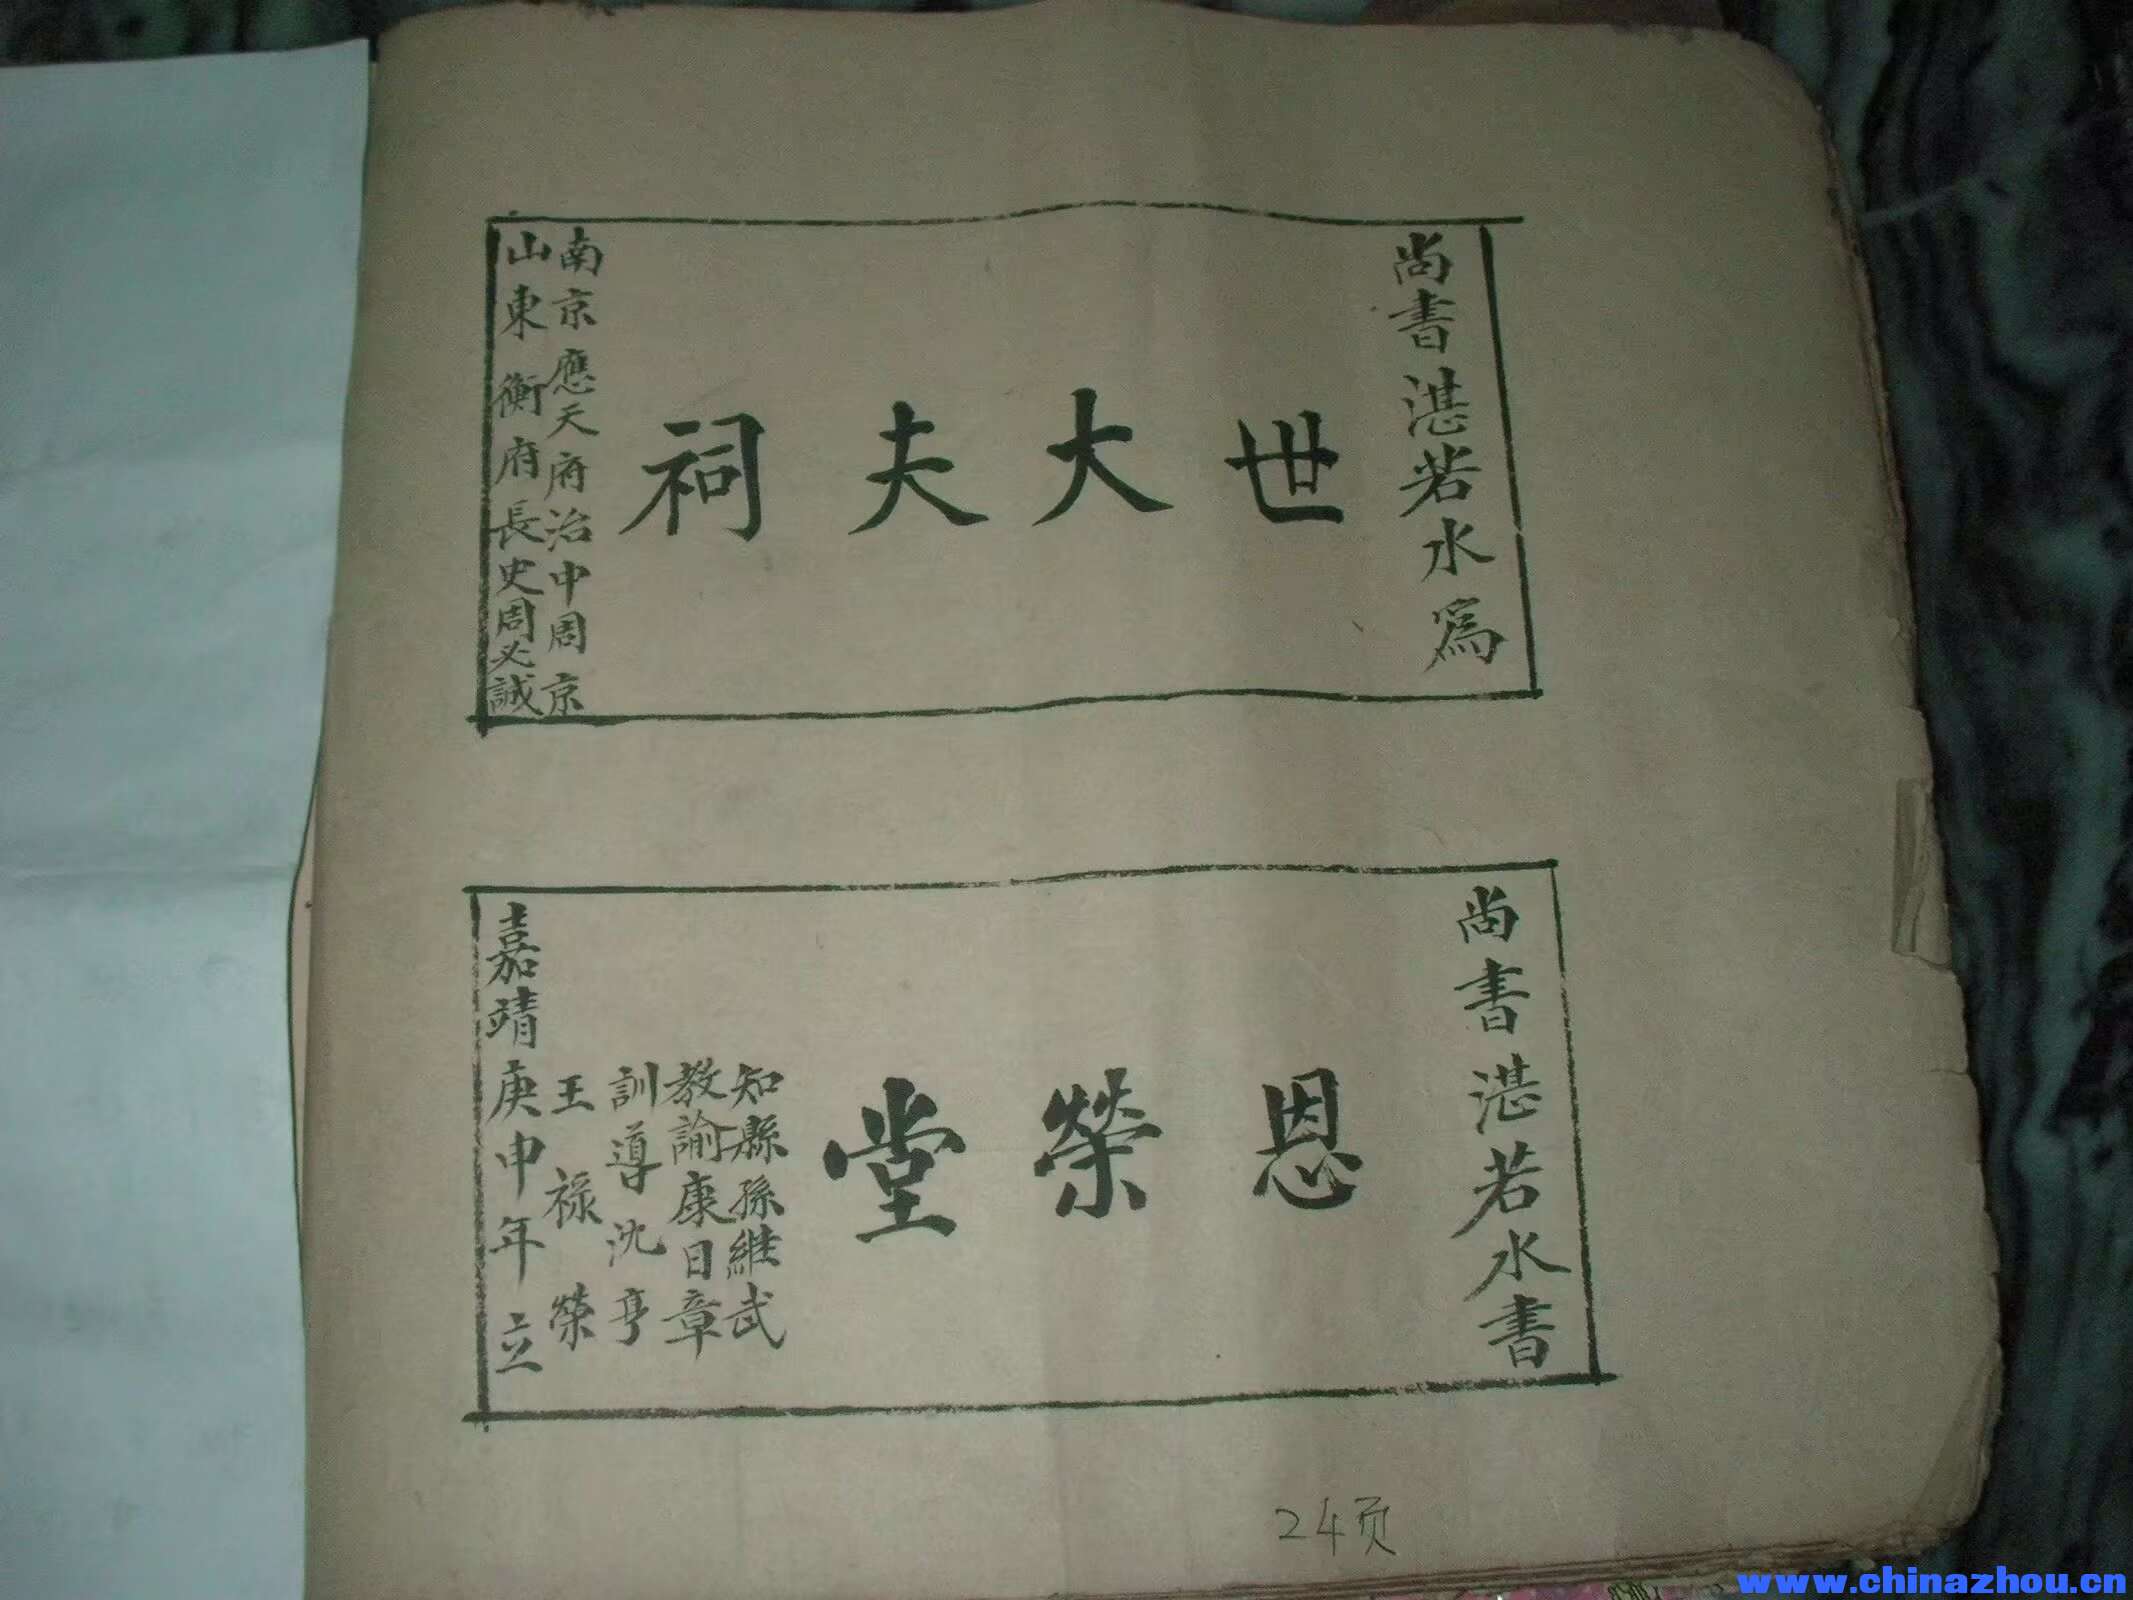 尚書湛若水爲
世大夫祠
南京應天府治中周京
山東衡府長史周必誠
尚書湛若水書
恩榮堂
知縣孫維武
教諭康日章
訓導沈亨
王祿榮
嘉靖庚申年立
24页
www.chinazhou.cn